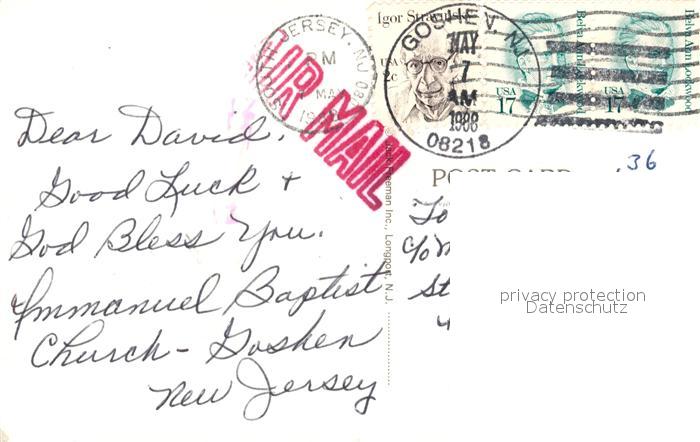 Dear David,
Good Luck +
God Bless You.
Immanuel Baptist
Church - Goshen
New Jersey
AIR MAIL
SOUTH JERSEY, NJ 080
PM
MAY
Igor Stravinsky
USA
2c
GOSHEN, NJ
MAY
7
AM
1988
08218
Belva Ann Lockwood
USA
17
Belva Ann Lockwood
USA
17
36
POST CARD
Freeman Inc., Longport, N.J.
To
c/o
St
privacy protection
Datenschutz